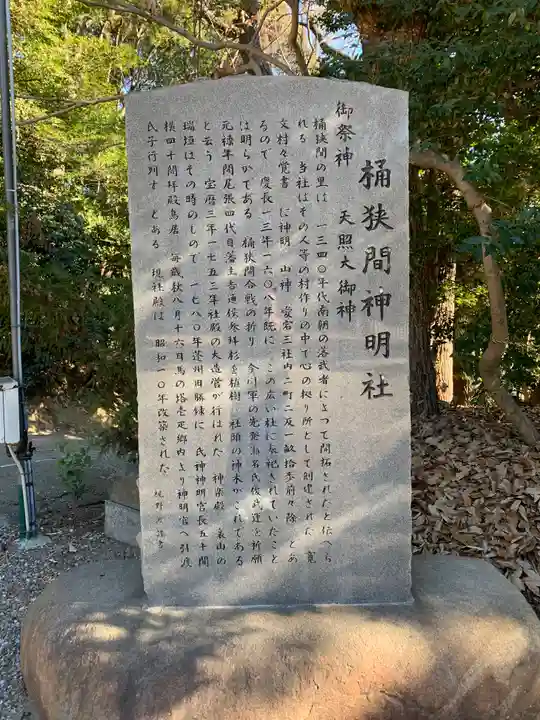 桶狭間神明社
御祭神　天照大御神
桶狭間の里は　一三四〇年代南朝の落武者によって開拓されたと伝へら
れる　当社はその人等の村作りの中で心の拠り所として創建された　寛
文村々覚書　に神明　山神　愛宕三社内二町二反一畝拾歩前々除　とあ
るので　慶長一三年一六〇八年既に　この広い社に奉祀されていたこと
は明らかである　桶狭間合戦の折り　今川軍の先発瀬名氏俊武運を祈願
元禄年間尾張四代目藩主吉通侯参拝杉を植樹　社頭の神木がこれである
と云う　宝暦三年一七五三年社殿の大造営が行はれた　神楽殿　裏山の
瑞垣はその時のもので　一七八〇年蓬州旧勝録に　氏神神明宮長五十間
横四十間拝殿鳥居　毎歳秋八月十六日馬の塔壱疋郷内より神明宮へ引渡
氏子行列す　とある　現社殿は　昭和一〇年改築された